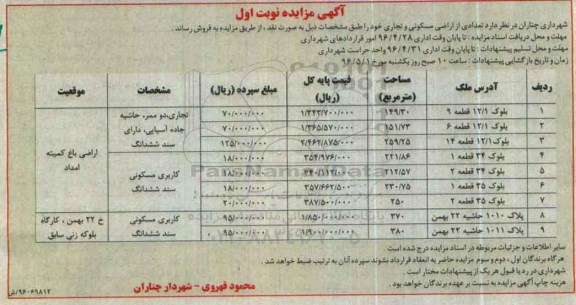 آگهی مزایده نوبت اول
شهرداری چناران در نظر دارد تعدادی از اراضی مسکونی و تجاری خود را طبق مشخصات ذیل به صورت نقد ، از طریق مزایده به فروش رساند .
مهلت و محل دریافت اسناد مزایده : تا پایان وقت اداری ۹۶/۴/۲۸ امور قراردادهای شهرداری
مهلت و محل تسلیم پیشنهادات : تا پایان وقت اداری ۹۶/۴/۳۱ واحد حراست شهرداری
زمان و تاریخ بازگشایی پیشنهادات : ساعت ۱۰ صبح روز یکشنبه مورخ ۹۶/۵/۱
ردیف آدرس ملک مساحت (مترمربع) قیمت پایه کل (ریال) مبلغ سپرده (ریال) مشخصات موقعیت
۱ بلوک ۱۲/۱ قطعه ۹ ۱۴۹/۳۰ ۱/۳۴۳/۷۰۰/۰۰۰ ۷۰/۰۰۰/۰۰۰ تجاری،دو ممر، حاشیه جاده آسیایی، دارای سند ششدانگ اراضی باغ کمیته امداد
۲ بلوک ۱۲/۱ قطعه ۶ ۱۵۱/۷۳ ۱/۳۶۵/۵۷۰/۰۰۰ ۷۰/۰۰۰/۰۰۰
۳ بلوک ۱۲/۱ قطعه ۱۴ ۲۵۹/۲۵ ۲/۴۶۲/۸۷۵/۰۰۰ ۱۲۵/۰۰۰/۰۰۰
۴ بلوک ۳۴ قطعه ۱ ۲۲۱/۸۶ ۳۵۴/۹۷۶/۰۰۰ ۱۸/۰۰۰/۰۰۰ کاربری مسکونی سند ششدانگ
۵ بلوک ۳۴ قطعه ۲ ۲۱۲/۵۷ ۱۸/۰۰۰/۰۰۰
۶ بلوک ۳۵ قطعه ۱ ۲۳۰/۷۵ ۳۵۷/۶۶۲/۵۰۰ ۱۸/۰۰۰/۰۰۰
۷ بلوک ۳۵ قطعه ۲ ۲۵۰ ۳۸۷/۵۰۰/۰۰۰ ۲۰/۰۰۰/۰۰۰
۸ پلاک ۱۰۱۰ حاشیه ۲۲ بهمن ۳۷۰ ۱/۸۵۰/۰۰۰/۰۰۰ ۹۵/۰۰۰/۰۰۰ کاربری مسکونی سند ششدانگ خ ۲۲ بهمن ، کارگاه بلوکه زنی سابق
۹ پلاک ۱۰۱۱ حاشیه ۲۲ بهمن ۳۸۰ ۱/۹۰۰/۰۰۰/۰۰۰ ۹۵/۰۰۰/۰۰۰
سایر اطلاعات و جزئیات مربوطه در اسناد مزایده درج شده است .
هرگاه برندگان اول ، دوم و سوم مزایده حاضر به انعقاد قرارداد نشوند سپرده آنان به ترتیب ضبط خواهد شد .
شهرداری در رد یا قبول هر یک از پیشنهادات مختار است .
هزینه چاپ آگهی مزایده به نسبت بر عهده برندگان خواهد بود .
محمود قهروی - شهردار چناران
۹۶۰۶۹۸۱۲/ش